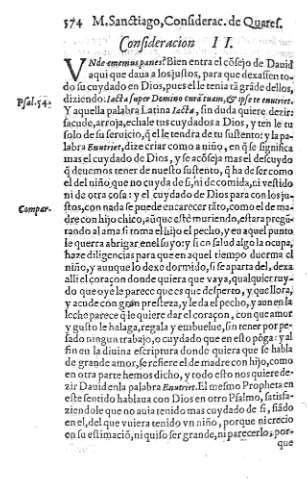 574 M. Sanctiago, Considerac. de Quares.
Consideracion II.
VNde ememus panes? Bien entra el cõsejo de Dauid
aqui que daua a los justos, para que dexassen to-
do su cuydado en Dios, pues el le tenia tã grãde dellos,
Psal. 54. diziendo: Iacta super Domino curã tuam, & ipse te enutriet.
Y aquella palabra Latina Iacta, sin duda quiere dezir:
sacude, arroja, echale tus cuydados a Dios, y ten le tu
solo de su seruicio, q̃ el le tendra de tu sustento: y la pa-
labra Enutriet, dize criar como a niño, en q̃ se significa
mas el cuydado de Dios, y se acõseja mas el descuydo
q̃ deuemos tener de nuestro sustento, q̃ ha de ser como
el del niño, que no cuyda de si, ni de comida, ni vestido
ni de otra cosa: y el cuydado de Dios para con los ju-
Compar. stos, con nada se puede encarecer tãto, como el de ma-
dre con hijo chico, aũque estè muriendo, estara pregũ-
tando al ama si toma el hijo el pecho, y en aquel punto
le querra abrigar en el suyo: y si con salud algo la ocupa,
haze diligencias para que en aquel tiempo duerma el
niño, y aunque lo dexe dormido, si se aparta del, dexa
alli el coraçon donde quiera que vaya, qualquier ruy-
do que oye le parece que es que desperto, y que llora,
y acude con gran presteza, y le da el pecho, y aun en la
leche parece q̃ le quiere dar el coraçon, con que amor
y gusto le halaga, regala y embuelue, sin tener por pe-
sado ningun trabajo, o cuydado que en esto põga: y al
fin en la diuina escriptura donde quiera que se habla
de grande amor, se refiere el de madre con hijo, como
en otra parte hemos dicho, y todo esto nos quiere de-
zir Dauid en la palabra Enutriet. El mesmo Propheta en
este sentido hablaua con Dios en otro Psalmo, satisfa-
ziendole que no auia tenido mas cuydado de si, fiãdo
en el, del que vuiera tenido vn niño, porque ni crecio
en su estimaciõ, ni quiso ser grande, ni parecerlo, por-
que